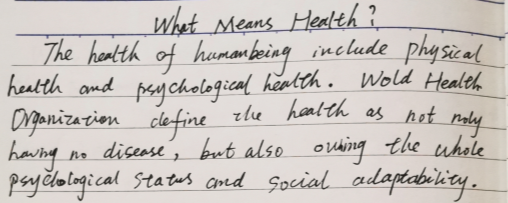 What Means Health?
The health of humanbeing include physical
health and psychological health. Wold Health
Organization define the health as not noly
having no disease, but also owing the whole
psychological status and social adaptability.